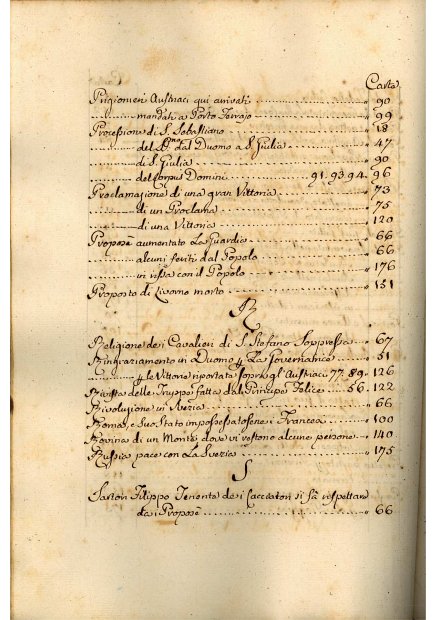 Carte
Prigionieri Austriaci qui arrivati " 90
mandati a Porto Ferrajo " 99
Processione di S. Sebastiano " 18
del SSmo dal Duomo a S. Giulia " 47
di S. Giulia " 90
del Corpus Domini 91. 93. 94. 96
Proclamazione di una gran Vittoria " 73
di un Proclama " 75
di una Vittoria " 120
Propose aumentato La Guardia " 66
alcuni feriti dal Popolo " 66
in rissa con il Popolo " 176
Proposto di Livorno morto " 151
R
Religione dei Cavalieri di S. Stefano Soppressa " 67
Ringraziamento in Duomo p La Governance " 51
p le Vittorie riportate sopra gl'Austriaci 77. 89. " 126
Rivista delle Truppe fatta dal Principe Felice 56. " 122
Rivoluzione in Svezia " 66
Roma, e suo Stato impossessatosene i Francesi " 100
Rovina di un Monte dove vi restono alcune persone " 140
Russia pace con La Svezia " 175
S
Sartori Filippo Tenente dei Cacciatori si fà rispettare
dai Propose " 66